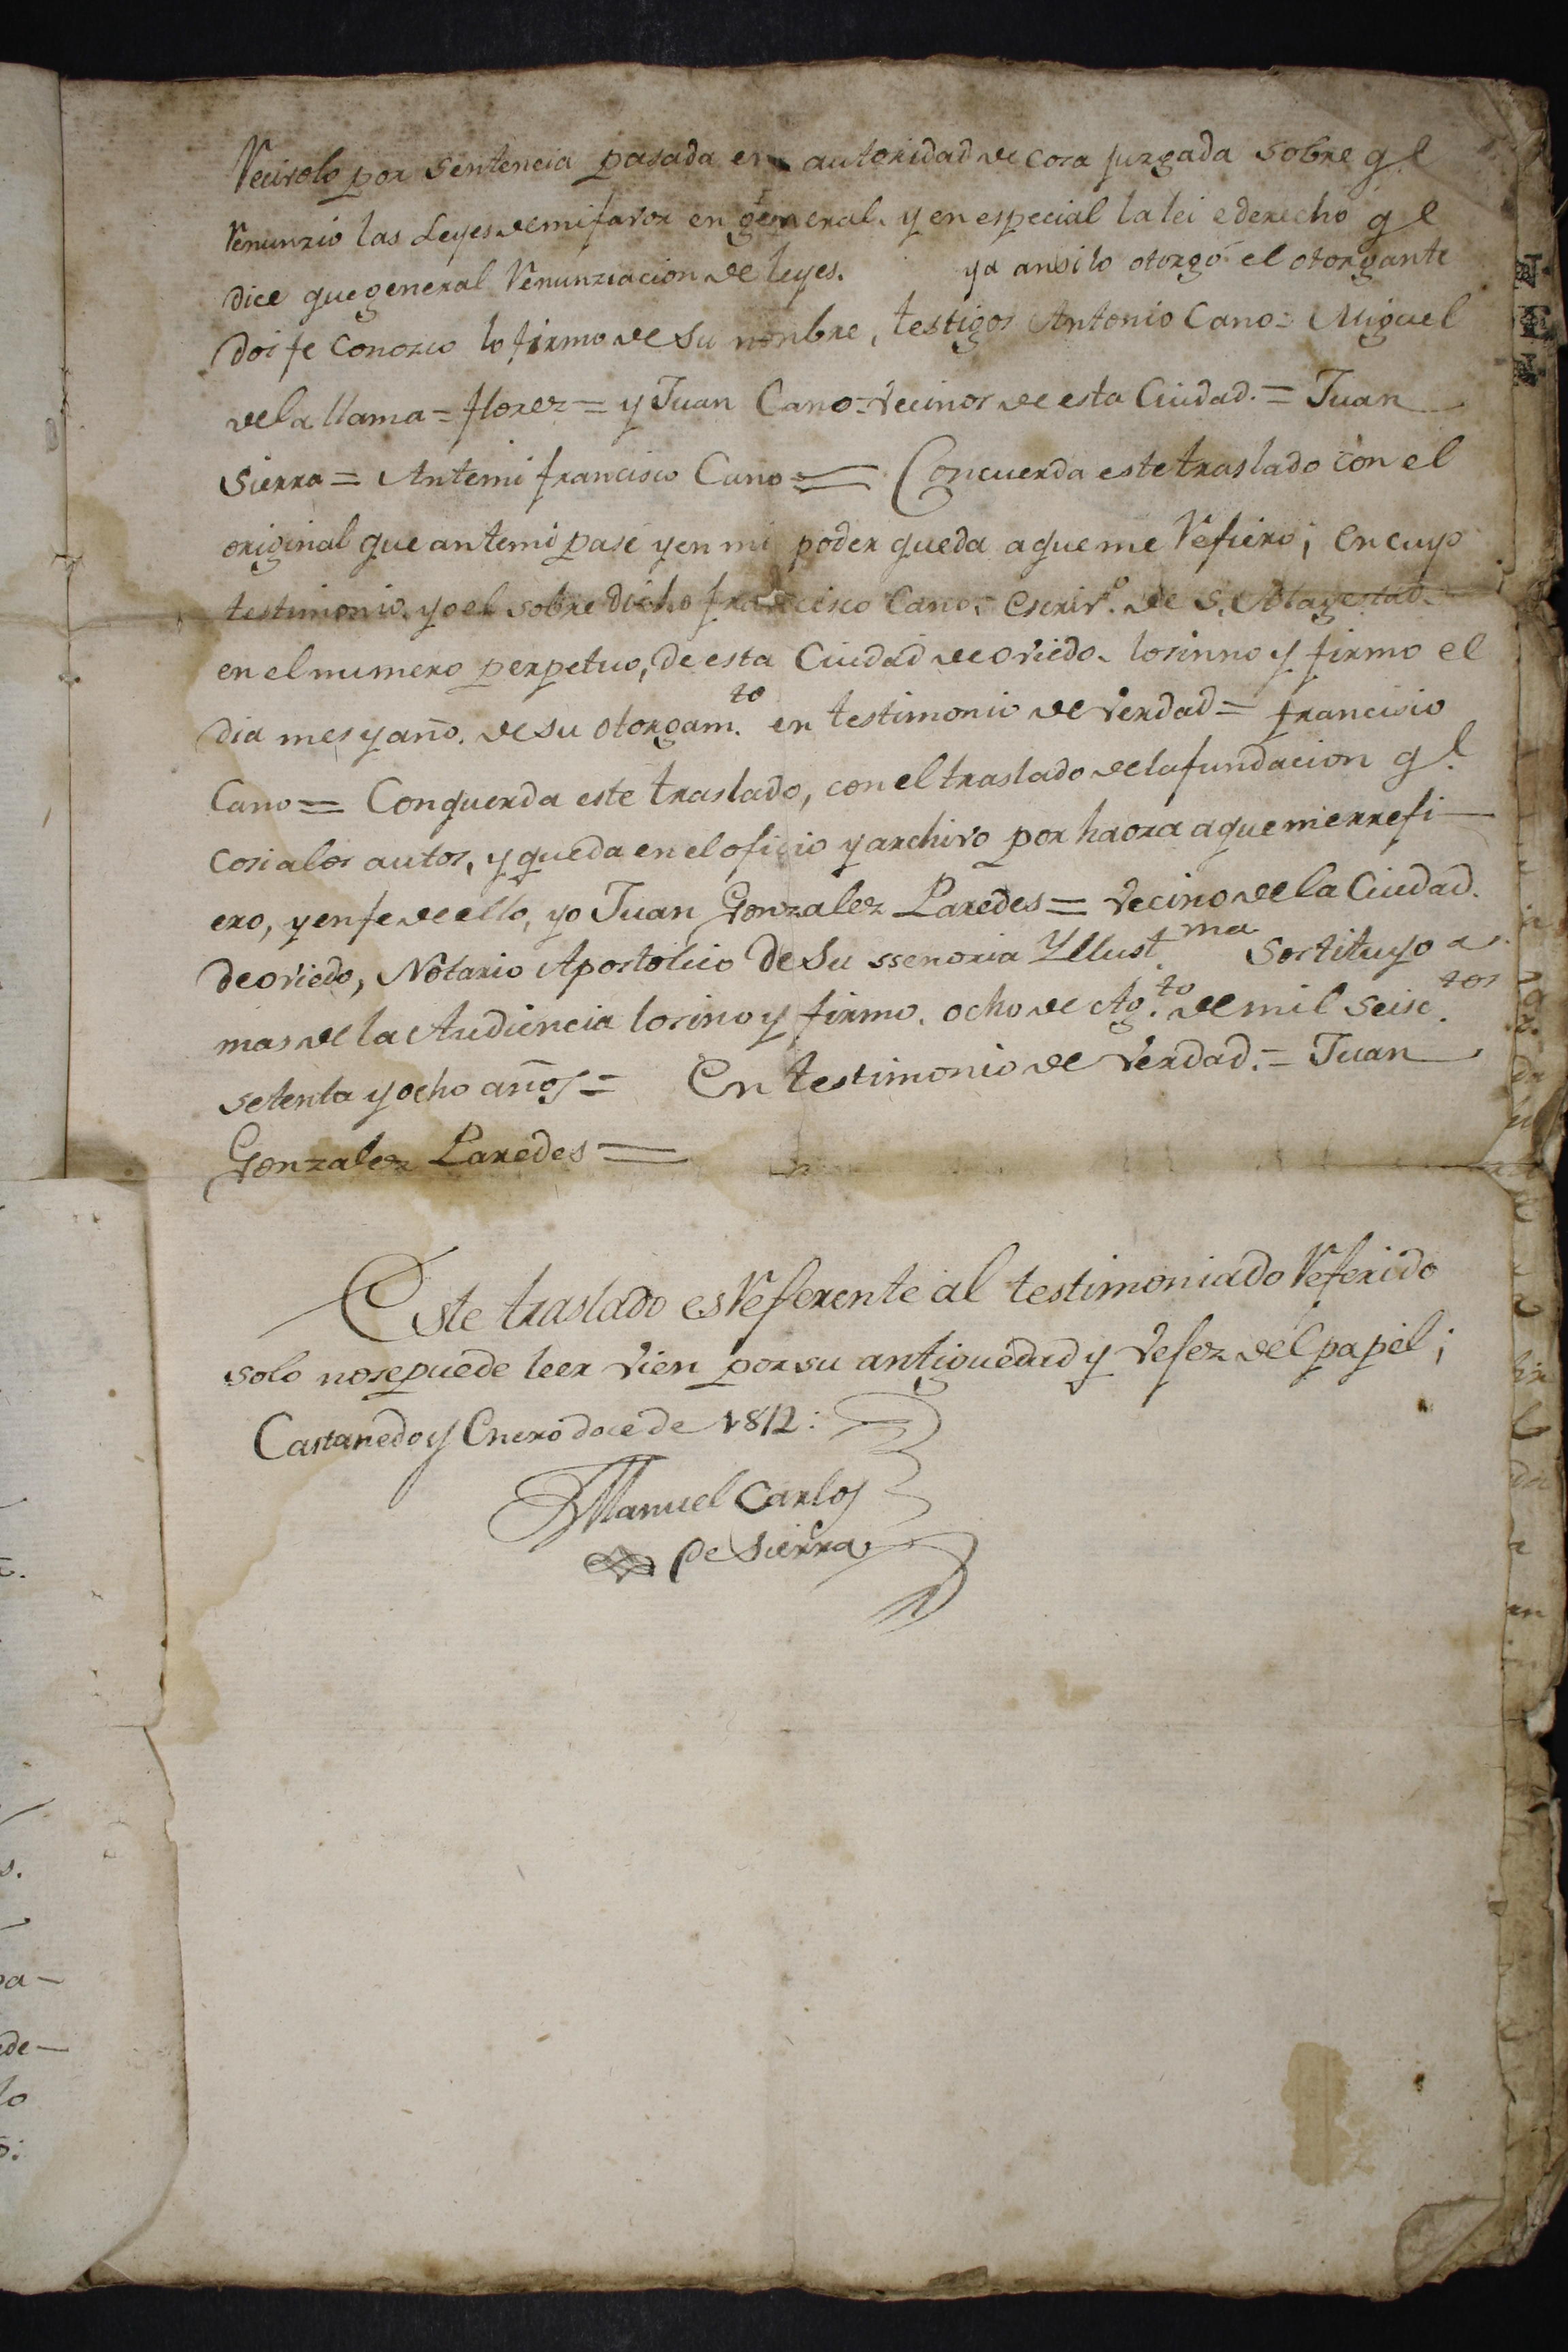 Recivolo por sentencia pasada en autoridad de cosa juzgada sobre q.e
Renunzio las Leyes de mi favor en general. y en especial la lei e derecho q.e
dice que general Renunziacion de leyes. ya ansi lo otorgó el otorgante
doi fe conozco lo firmo de su nonbre, testigos Antonio Cano = Miguel
de la llama = florez = y Juan Cano = Vecinos de esta Ciudad. = Juan
Sierra = Antemi francisco Cano = Concuerda este traslado con el
original que antemi pasé y en mi poder queda a que me Refiero; en cuyo
testimonio. yo el sobre dicho francisco Cano, escriv.o de S. Magestad
en el numero perpetuo, de esta Ciudad de oviedo. lo sinno y firmo el
dia mes y año. de su otorgam.to en testimonio de Verdad = francisco
Cano = Conquerda este traslado, con el traslado de la fundacion q.e
cosi a los autos, y queda en el oficio y archivo por haora a que mi errefi-
ero, y en fe de ello, yo Juan Gonzalez Paredes = Vecino de la Ciudad.
de oviedo, Notario Apostolico de su ssenoria Yllust.ma Sostituyo a
mas de la Audiencia lo sino y firmo. ocho de Ag.to de mil seisc.tos
setenta y ocho años = En testimonio de Verdad. = Juan
Gonzalez Paredes =
Este traslado es Referente al testimoniado Referido
solo no se puede leer vien por su antiguedad y Vefez del papel;
Castanedo y Enero doce de 1812:
Manuel Carlos
de Sierra